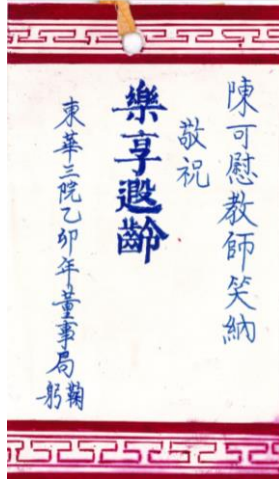 陳可慰教師笑納
敬祝
樂享遐齡
東華三院乙卯年董事局鞠躬